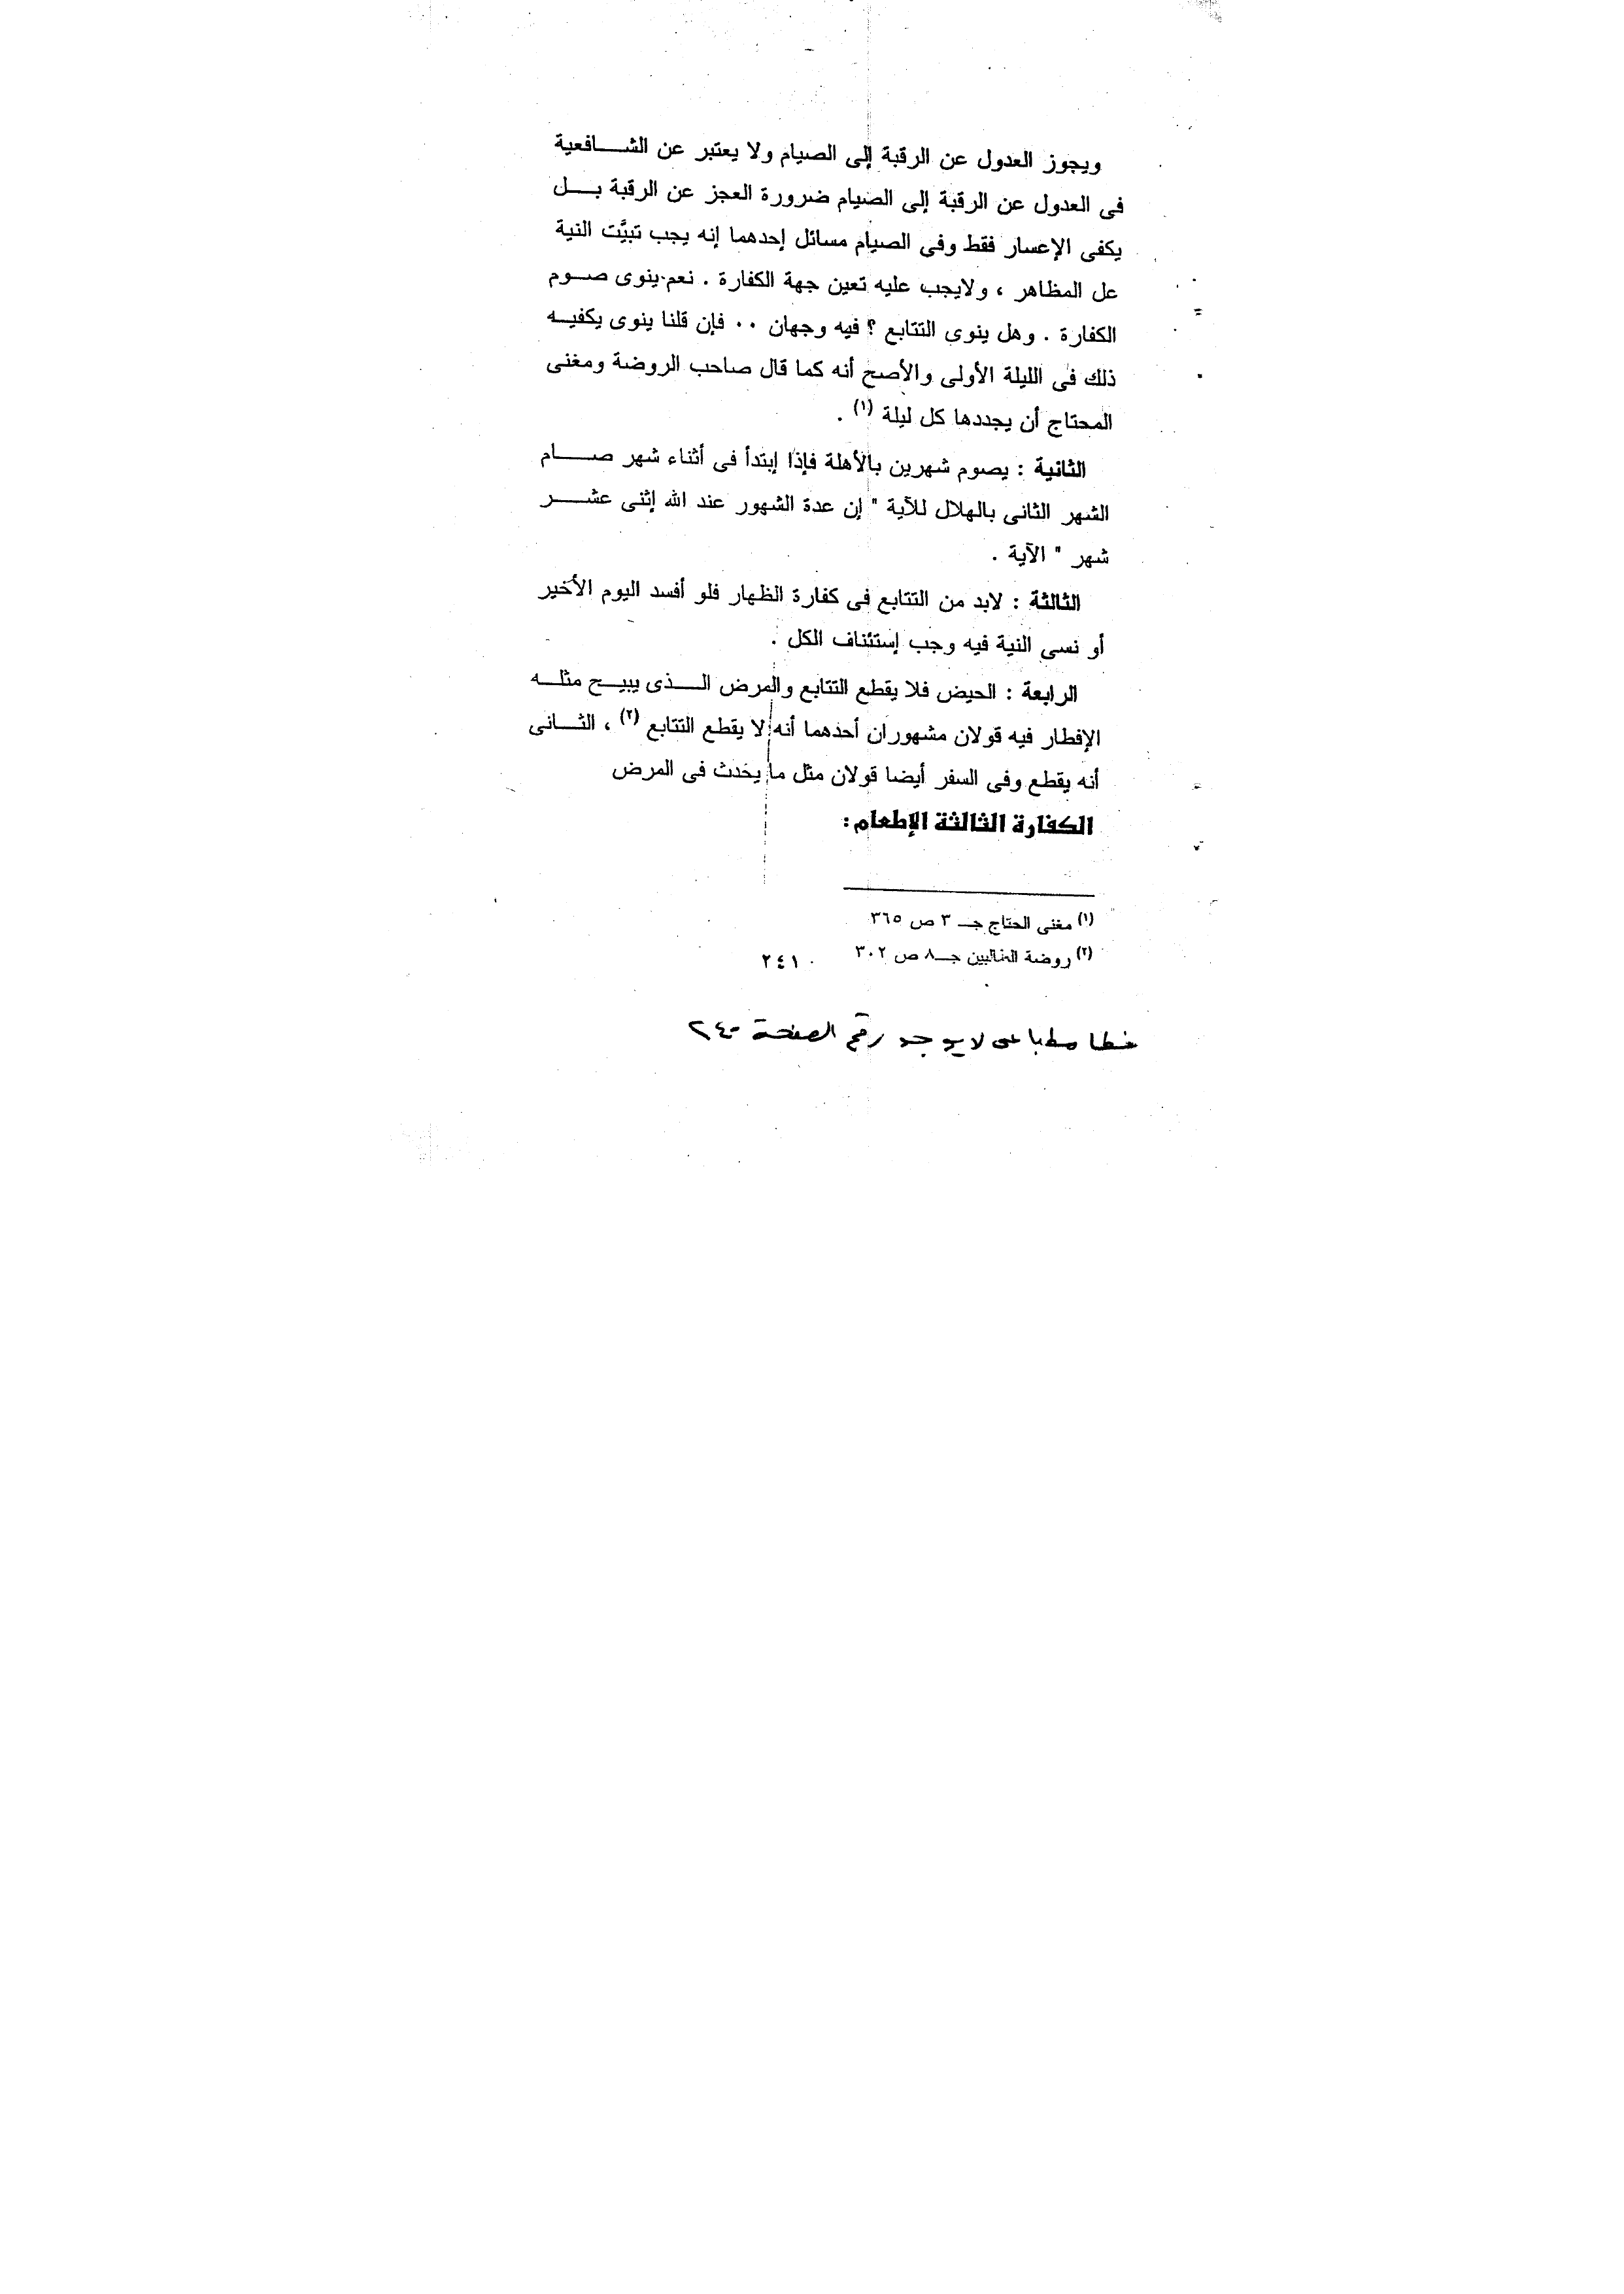 ويجوز العدول عن الرقبة إلى الصيام ولا يعتبر عن الشافعية
فى العدول عن الرقبة إلى الصيام ضرورة العجز عن الرقبة بل
يكفى الإعسار فقط وفى الصيام مسائل إحدهما إنه يجب تبيَّت النية
عل المظاهر ، ولايجب عليه تعين جهة الكفارة . نعم ينوى صوم
الكفارة . وهل ينوى التتابع ؟ فيه وجهان .. فإن قلنا ينوى يكفيه
ذلك فى الليلة الأولى والأصح أنه كما قال صاحب الروضة ومغنى
المحتاج أن يجددها كل ليلة (١) .
الثانية : يصوم شهرين بالأهلة فإذا إبتدأ فى أثناء شهر صام
الشهر الثانى بالهلال للآية " إن عدة الشهور عند الله إثنى عشر
شهر " الآية .
الثالثة : لابد من التتابع فى كفارة الظهار فلو أفسد اليوم الأخير
أو نسى النية فيه وجب إستئناف الكل .
الرابعة : الحيض فلا يقطع التتابع والمرض الذى يبيح مثله
الإفطار فيه قولان مشهوران أحدهما أنه لا يقطع التتابع (٢) ، الثانى
أنه يقطع وفى السفر أيضا قولان مثل ما يحدث فى المرض
الكفارة الثالثة الإطعام:
(١) مغنى الحتاج جـ ٣ ص ٣٦٥
(٢) روضة الطالبين جـ٨ ص ٣٠٢
٢٤١
خطا مطباعى لا يوجد رقم الصفحة ٢٤٠